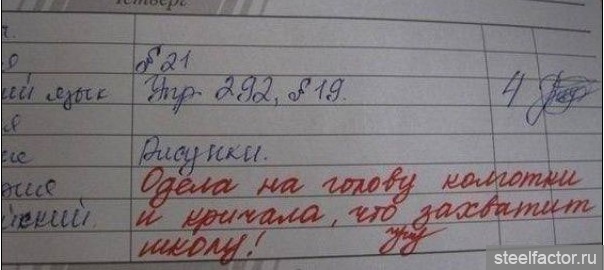 Четверг
я §21
ий язык Упр 292, §19. 4
я
ие Рисунки.
рия Одела на голову колготки
йский. и кричала, что захватит
школу!
steelfactor.ru